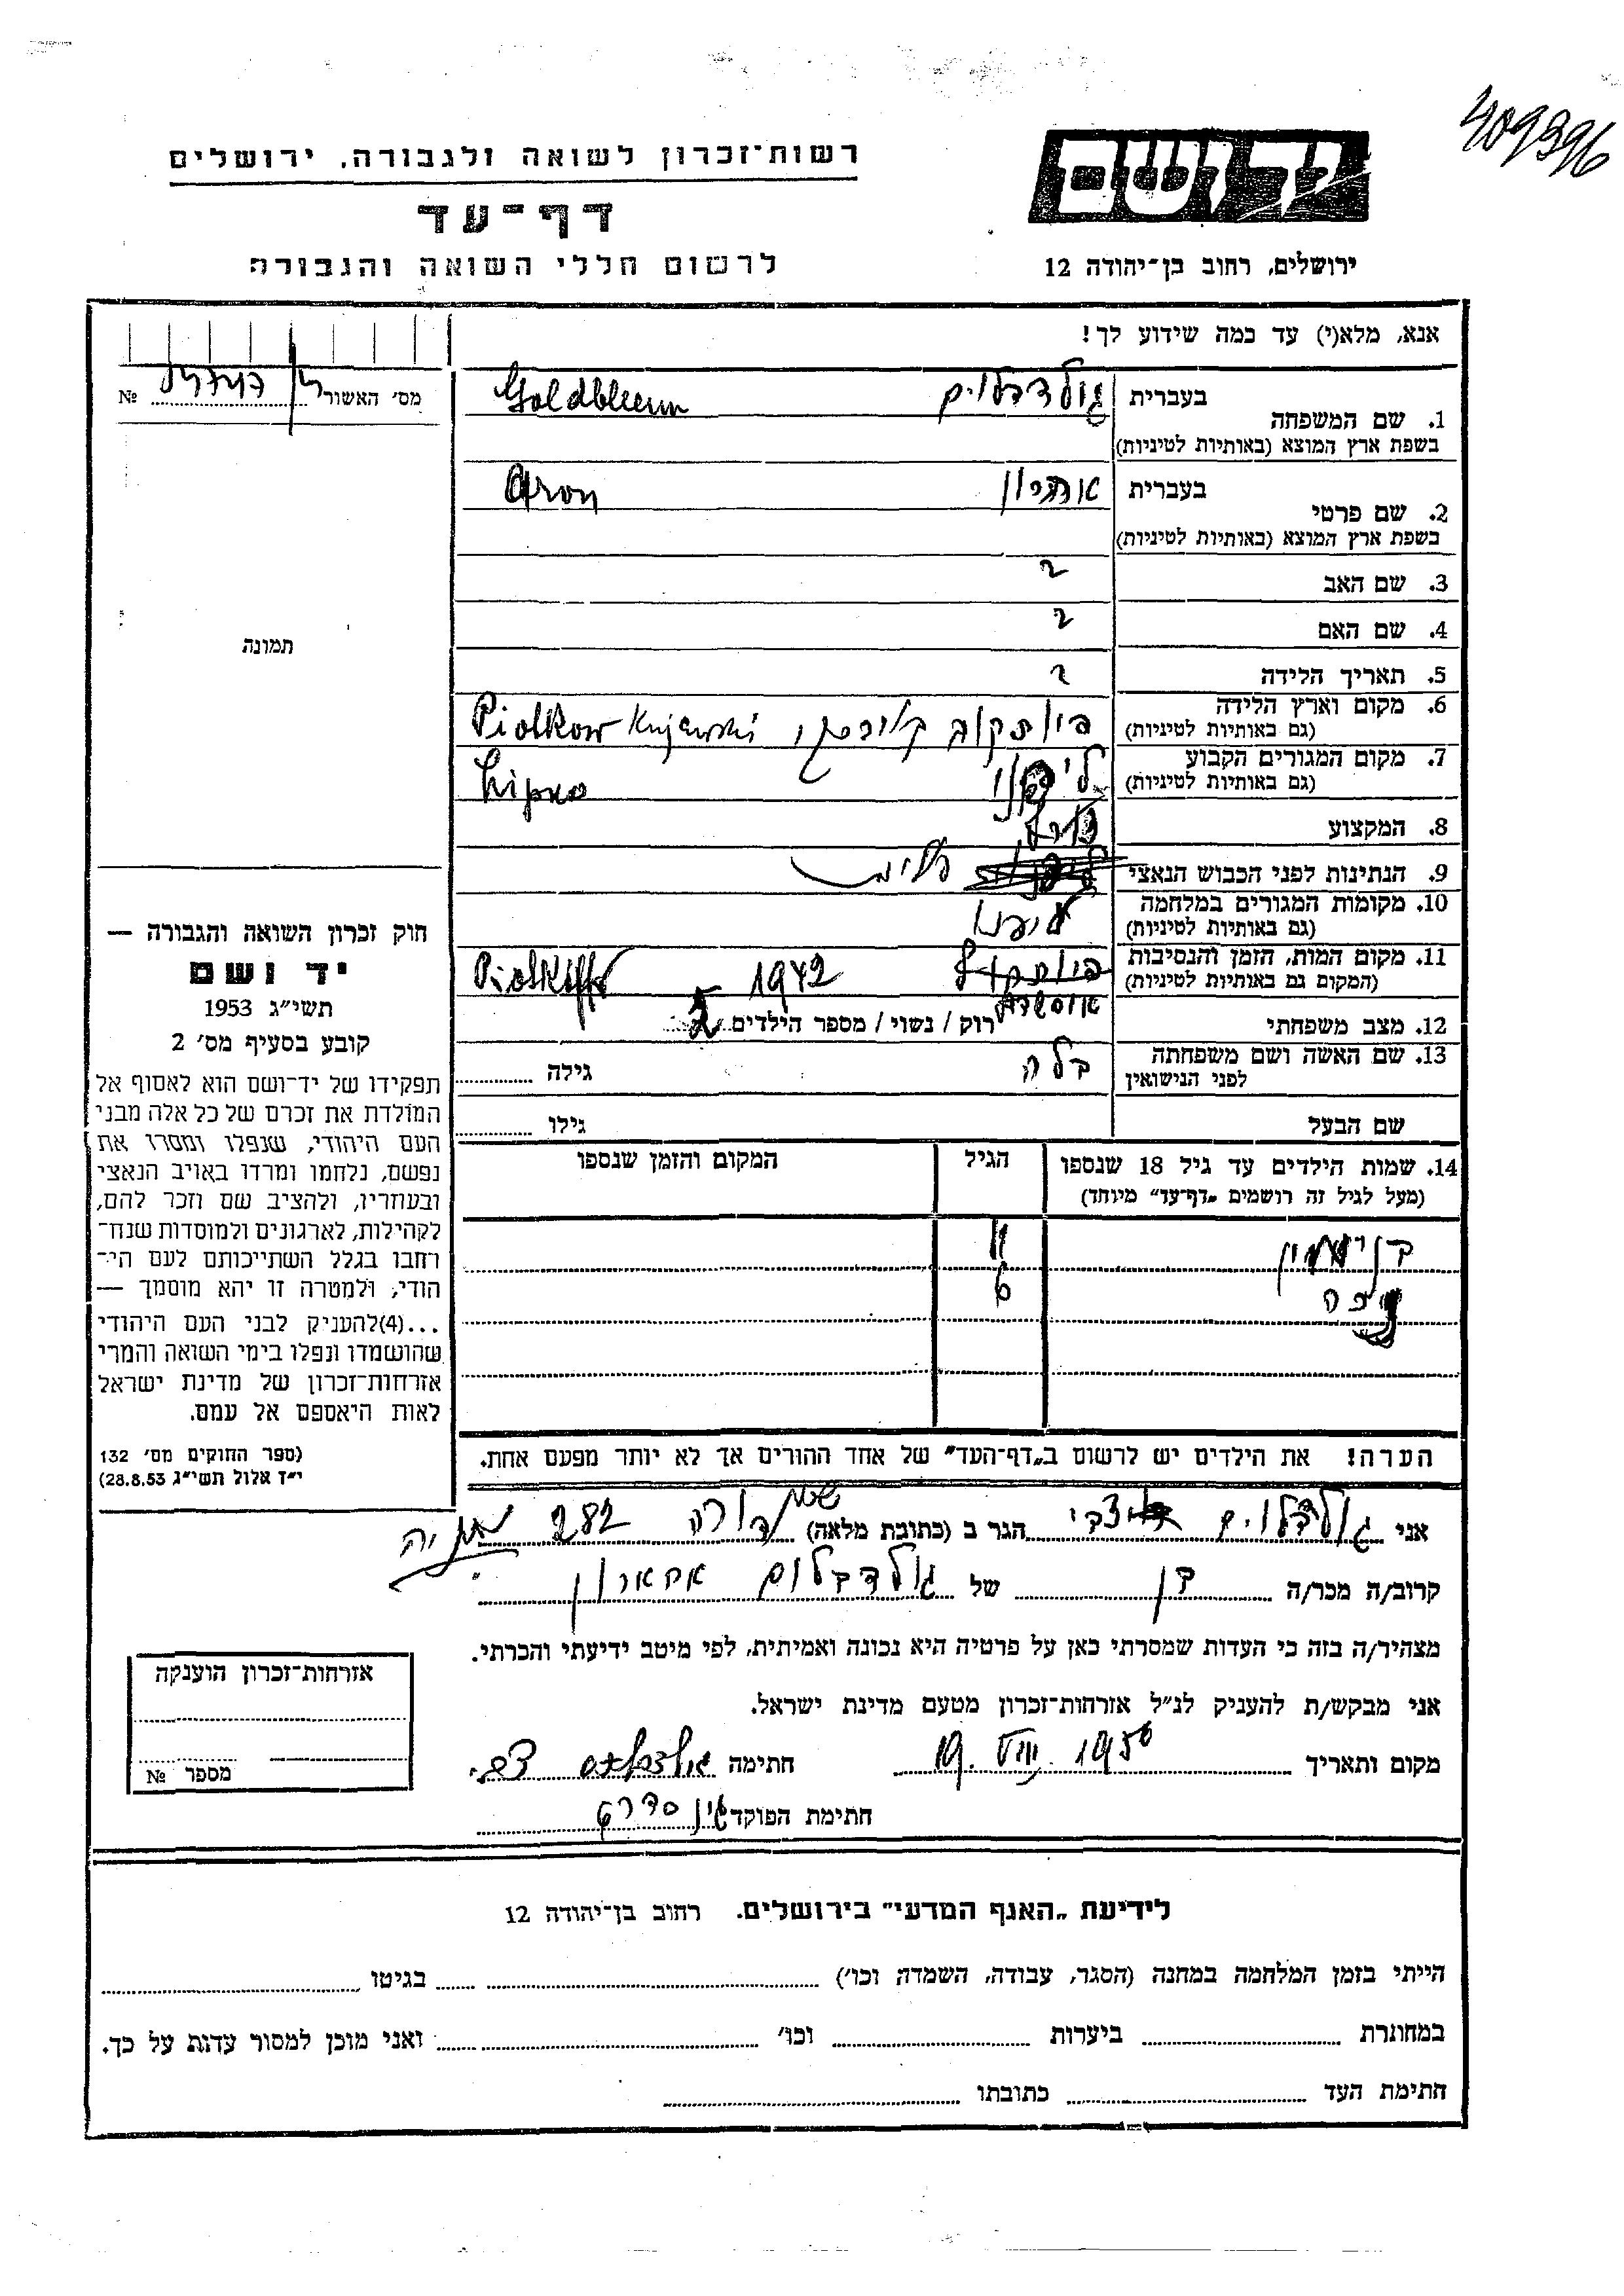 409396
רשות־זכרון לשואה ולגבורה, ירושלים
יד ושם
דף־עד
לרשום חללי השואה והגבורה
ירושלים, רחוב בן־יהודה 12
אנא, מלא(י) עד כמה שידוע לך!
מס׳ האשור №
1. שם המשפחה בעברית גולדבלוים Goldbleum
בשפת ארץ המוצא (באותיות לטיניות)
2. שם פרטי בעברית Aron
בשפת ארץ המוצא (באותיות לטיניות)
3. שם האב ?
4. שם האם ?
5. תאריך הלידה ?
6. מקום וארץ הלידה Piolkow Kujewski
(גם באותיות לטיניות)
7. מקום המגורים הקבוע Lipno
(גם באותיות לטיניות)
8. המקצוע
9. הנתינות לפני הכבוש הנאצי
10. מקומות המגורים במלחמה
(גם באותיות לטיניות)
11. מקום המות, הזמן והנסיבות 1942
(המקום גם באותיות לטיניות)
12. מצב משפחתי רוק / נשוי / מספר הילדים 2
13. שם האשה ושם משפחתה בלה גילה
לפני הנישואין
שם הבעל גילו
14. שמות הילדים עד גיל 18 שנספו הגיל המקום והזמן שנספו
(מעל לגיל זה רושמים „דף־עד” מיוחד)
11
6
הערה! את הילדים יש לרשום ב„דף־העד” של אחד ההורים אך לא יותר מפעם אחת.
תמונה
חוק זכרון השואה והגבורה —
יד ושם
תשי״ג 1953
קובע בסעיף מס׳ 2
תפקידו של יד־ושם הוא לאסוף אל
המולדת את זכרם של כל אלה מבני
העם היהודי, שנפלו ומסרו את
נפשם, נלחמו ומרדו באויב הנאצי
ובעוזריו, ולהציב שם וזכר להם,
לקהילות, לארגונים ולמוסדות שנח־
רחבו בגלל השתייכותם לעם הי־
הודי; ולמטרה זו יהא מוסמך —
...(4)להעניק לבני העם היהודי
שהושמדו ונפלו בימי השואה והמרי
אזרחות־זכרון של מדינת ישראל
לאות היאספם אל עמם.
(ספר החוקים מס׳ 132
י״ד אלול תשי״ג 28.8.53)
אני גולדבלוים צבי הגר ב (כתובת מלאה) 282 נתניה
קרוב/ה מכר/ה בן של גולדבלום אהארון
מצהיר/ה בזה כי העדות שמסרתי כאן על פרטיה היא נכונה ואמיתית, לפי מיטב ידיעתי והכרתי.
אני מבקש/ת להעניק לנ״ל אזרחות־זכרון מטעם מדינת ישראל.
מקום ותאריך 19. VIII. 1956 חתימה
חתימת הפוקד
אזרחות־זכרון הוענקה
מספר №
לידיעת „האגף המדעי” בירושלים. רחוב בן־יהודה 12
הייתי בזמן המלחמה במחנה (הסגר, עבודה, השמדה וכו׳) בגיטו
במחתרת ביערות וכו׳ ואני מוכן למסור עדות על כך.
חתימת העד כתובתו